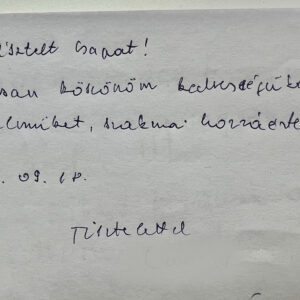 isztelt Csapat!
san köszönöm kedvességüke
elmüket, szakmai hozzáérte
. 09. 18.
Tisztelettel